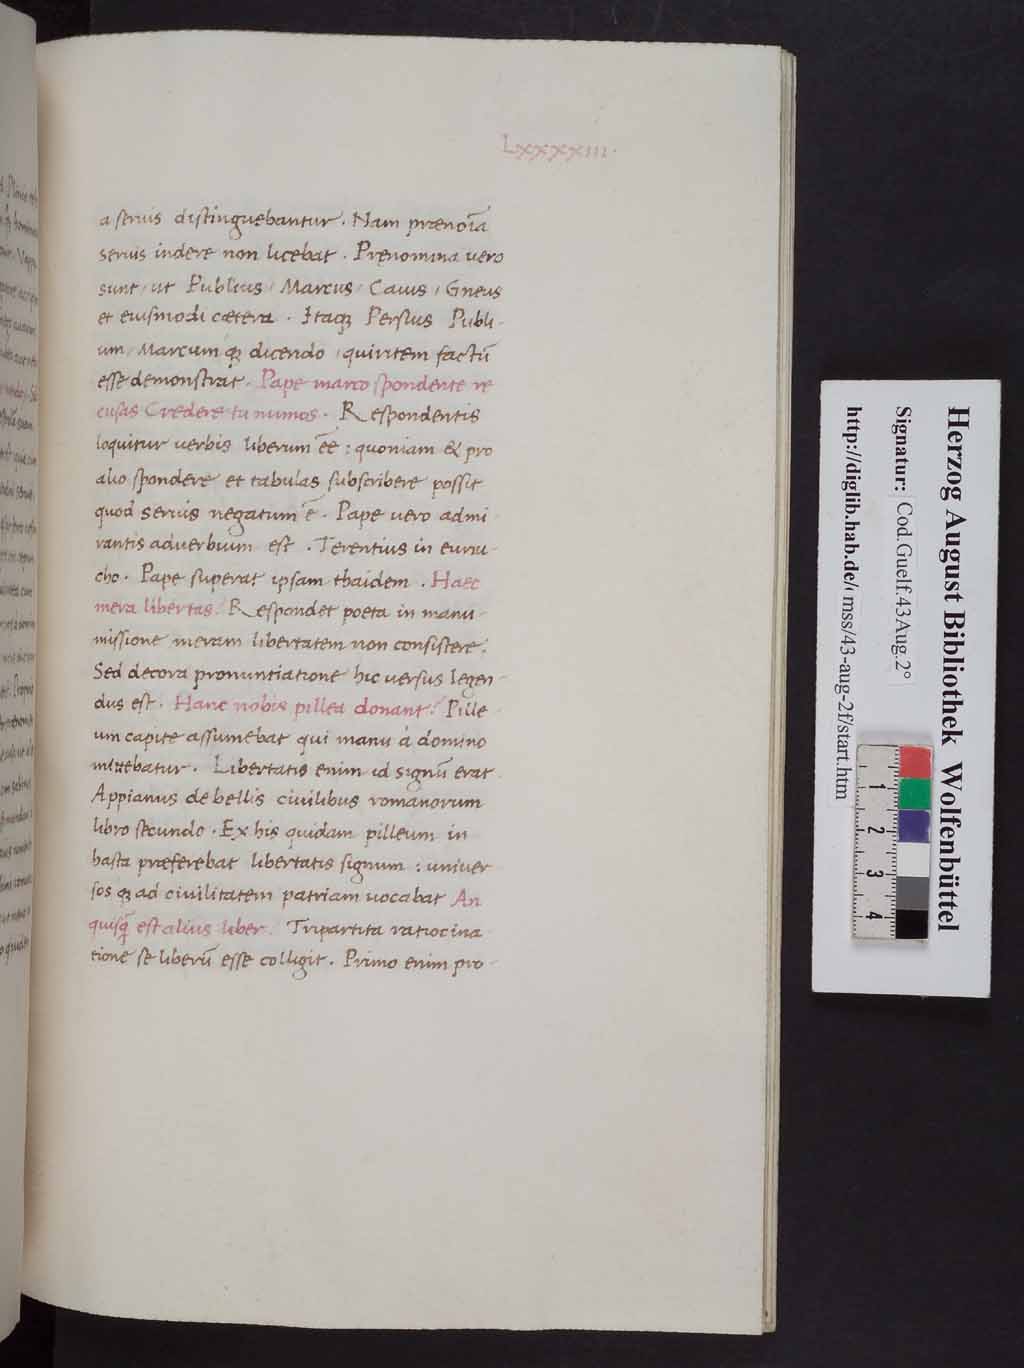 Lxxxxiii.
a seruis distinguebantur. Nam prænoia᷄
seruis indere non licebat. Prenomina uero
sunt, ut Publius, Marcus, Caius, Gneus
et eiusmodi cætera. Itaqꝫ Persius Publi-
um, Marcumqꝫ dicendo, quiritem factū
esse demonstrat. Pape marco spondente re
cusas Credere tu numos. Respondentis
loquitur uerbis liberum ēe: quoniam & pro
alio spondere et tabulas subscribere possit
quod seruis negatum ē. Pape uero admi-
rantis aduerbium est. Terentius in eunu-
cho. Pape superat ipsam thaidem. Haec
mera libertas. Respondet poeta in manu-
missione meram libertatem non consistere.
Sed decora pronuntiatione hic uersus legen-
dus est. Hanc nobis pillea donant? Pille-
um capite assumebat qui manu à domino
mittebatur. Libertatis enim id signū erat.
Appianus de bellis ciuilibus romanorum
libro secundo. Ex his quidam pilleum in
hasta præferebat libertatis signum: uniuer
sosqꝫ ad ciuilitatem patriam uocabat An
quisq̄ est alius liber. Tripartita ratiocina-
tione se liberū esse colligit. Primo enim pro-
Herzog August Bibliothek Wolfenbüttel
Signatur: Cod.Guelf.43 Aug.2°
http://diglib.hab.de/ mss/43-aug-2f/start.htm
1
2
3
4